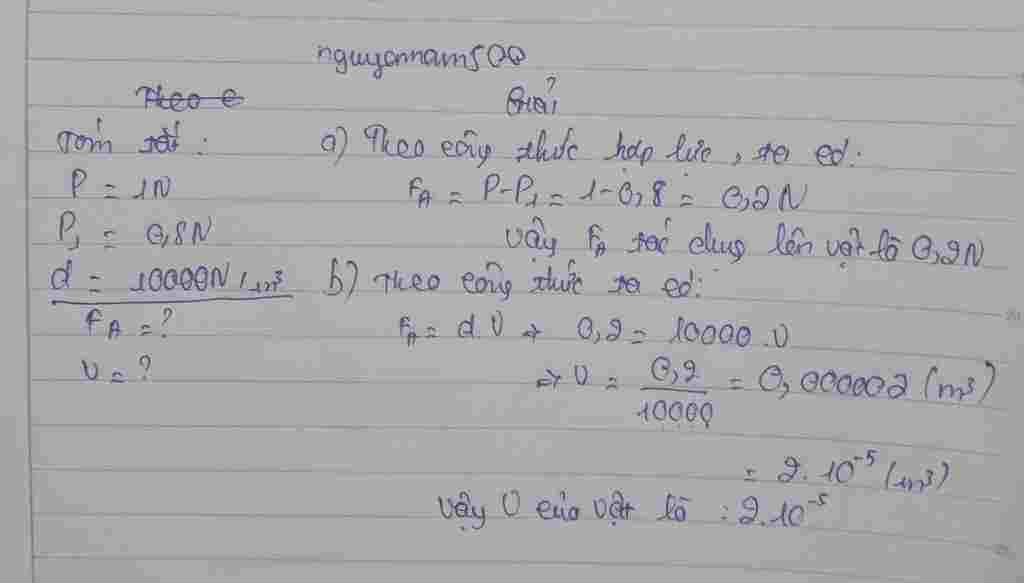 nguyannam500
Theo c
Giải
Tóm tắt :
P = 1N
P₁ = 0,8N
d = 10000N/m³
F_A = ?
V = ?
a) Theo công thức hợp lực, ta có:
F_A = P-P₁ = 1-0,8 = 0,2N
Vậy F_A tác dụng lên vật là 0,2N
b) Theo công thức ta có:
F_A = d.V → 0,2 = 10000.V
⇒ V = 0,2/10000 = 0,000002 (m³)
= 2.10⁻⁵ (m³)
Vậy V của vật là : 2.10⁻⁵